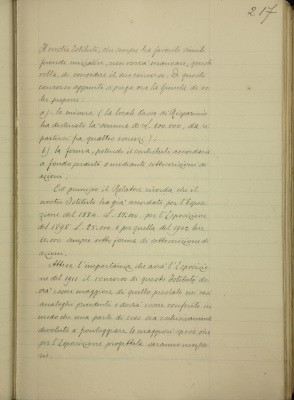 217
Il nostro Istituto, che sempre ha favorito simili
feconde iniziative, non vorrà mancare, questa
volta, di concedere il suo concorso. Di questo
concorso appunto si prega ora la Giunta di vo-
ler proporre:
a) - la misura (la locale Cassa di Risparmio
ha destinato la somma di L. 600.000, da ri-
partirsi fra quattro esercizi);
b) - la forma, potendo il contributo accordarsi
a fondo perduto o mediante sottoscrizione di
azioni.
Nel proposito il Relatore ricorda che il
nostro Istituto ha già accordato per l'Esposi-
zione del 1884 L. per l'Esposizione
del 1898 L. 25.000 e per quella del 1902 Lire
sempre sotto forma di sottoscrizione di
azioni.
Attesa l'importanza che avrà l'Esposizio-
ne del 1911 il concorso di questo Istituto do-
vrà essere maggiore di quello prestato nei casi
analoghi precedenti e dovrà essere conferito in
modo che una parte di esso sia esclusivamente
devoluta a fronteggiare le maggiori spese che
per l'Esposizione progettata saranno necessa-
rie.